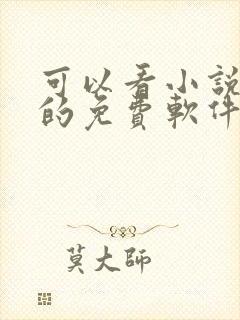 可以看小說
的免費軟件
莫大師